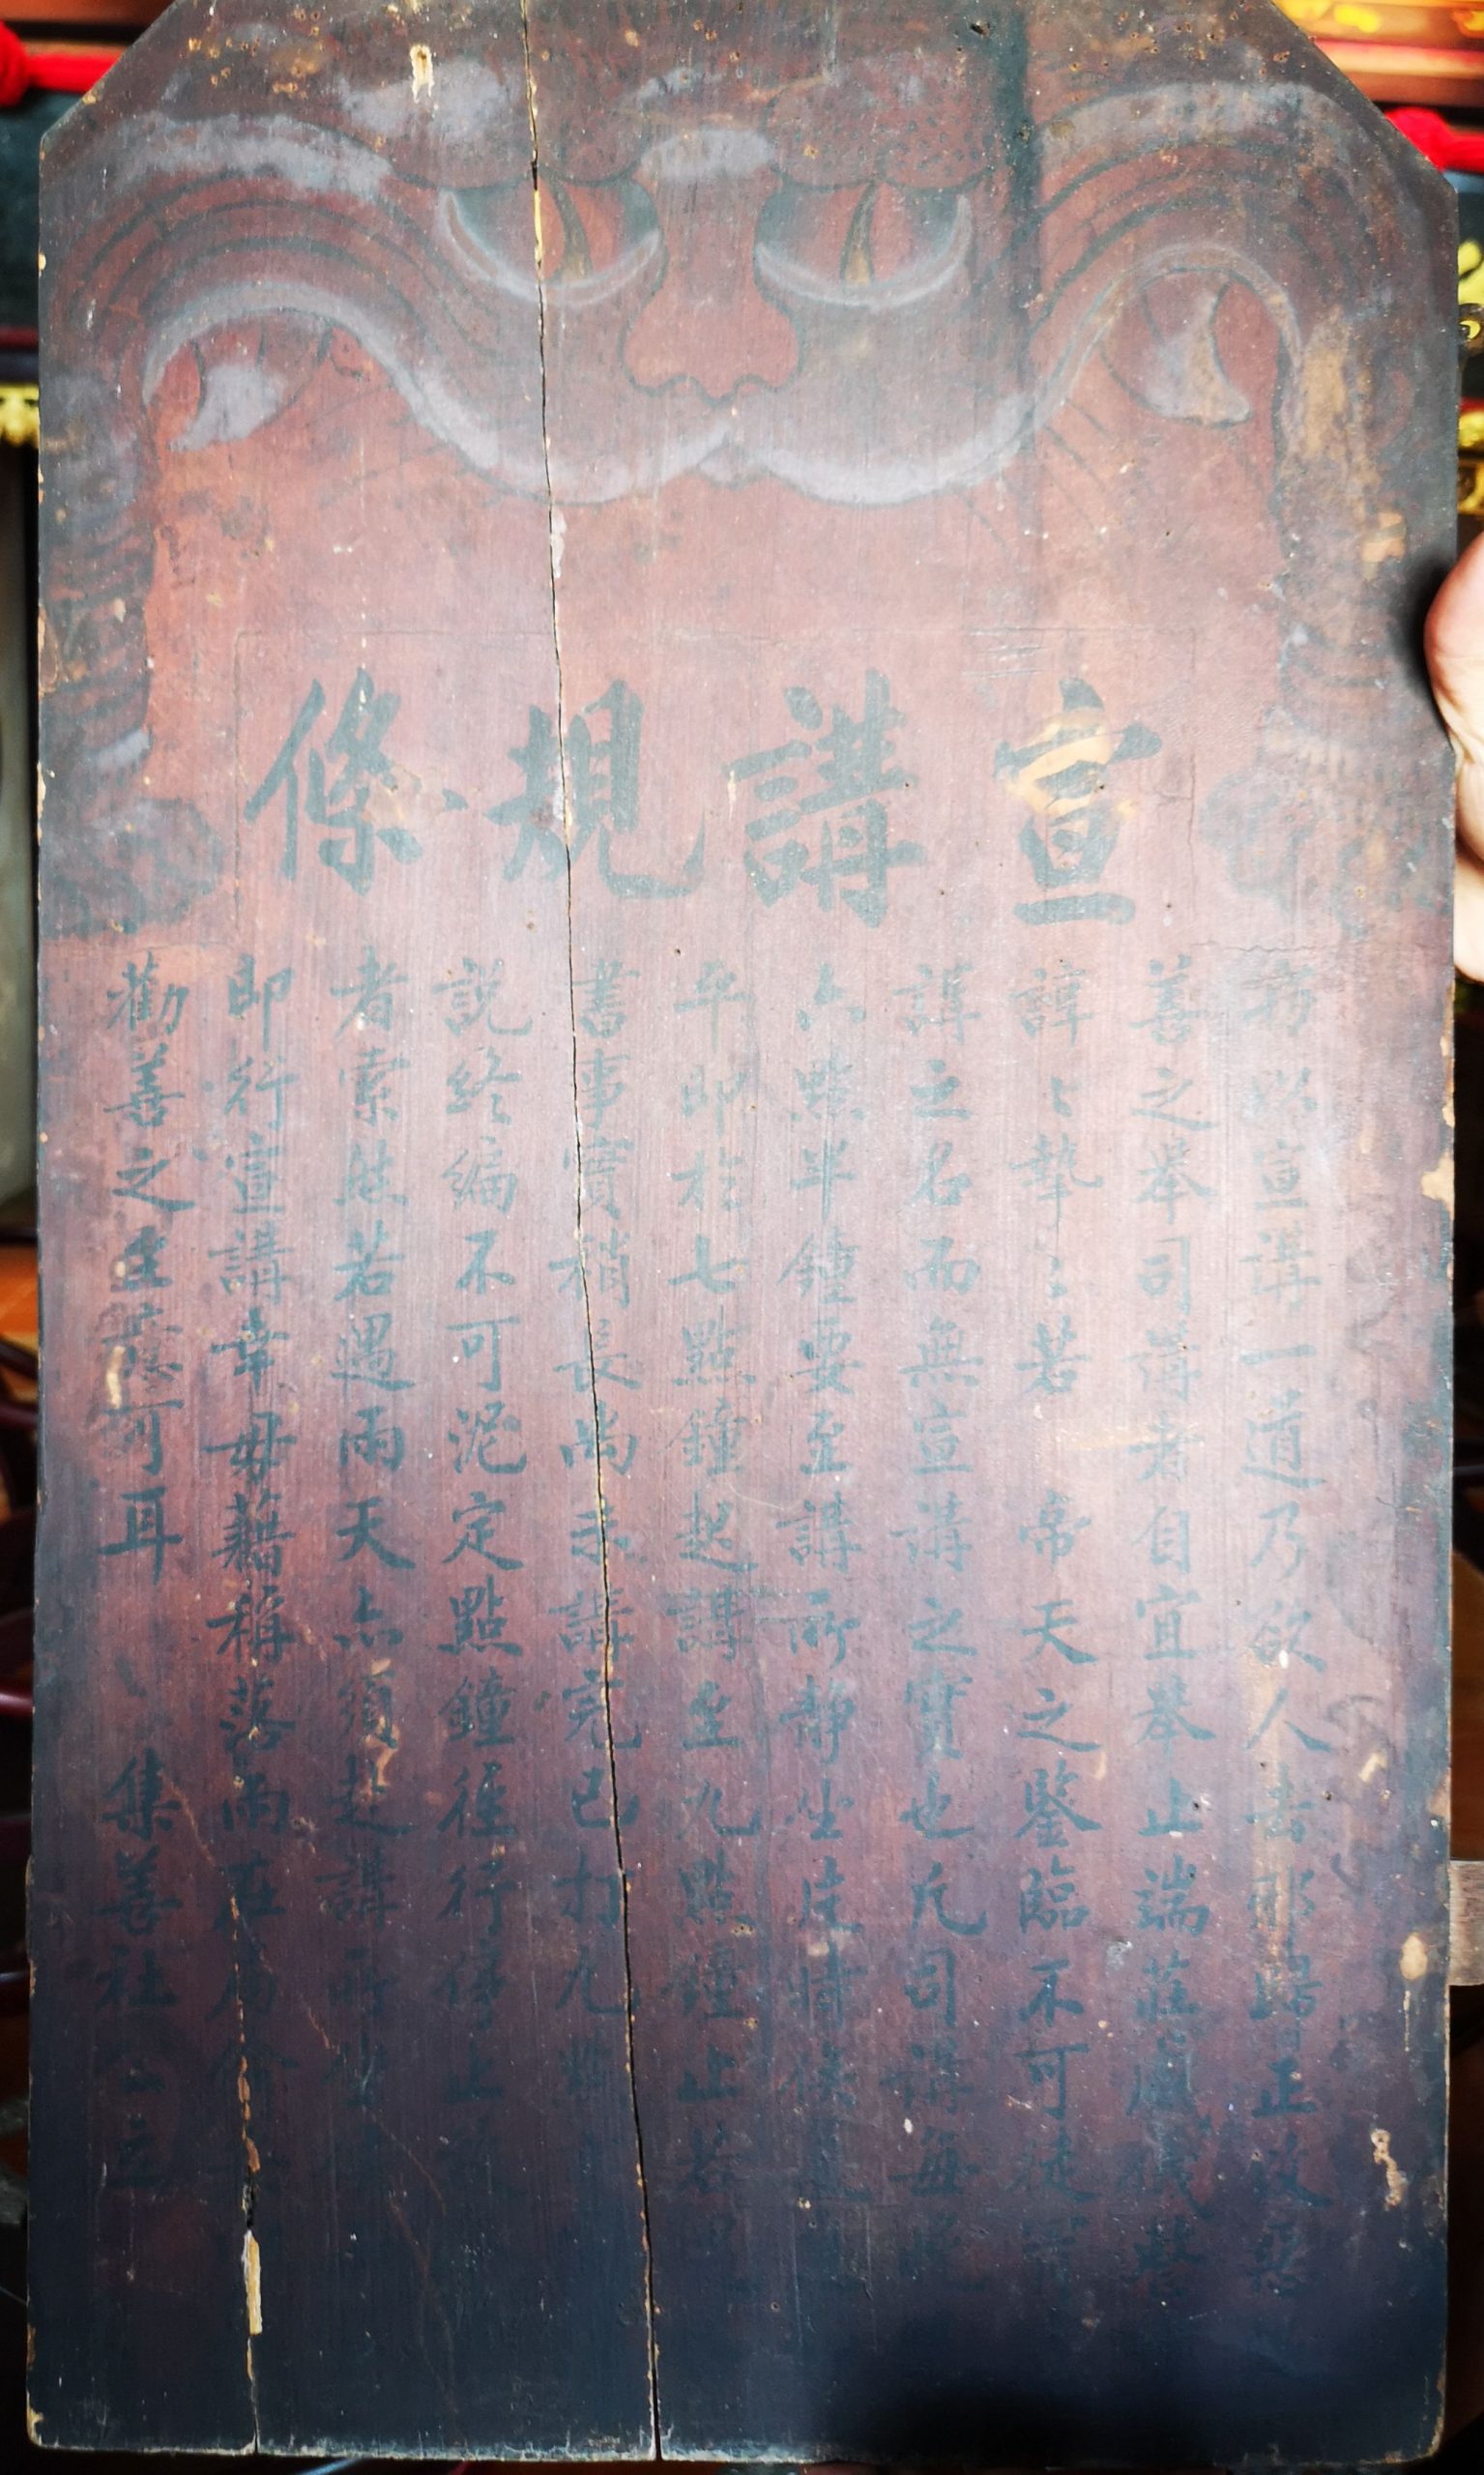 宣講規條
宣講一道乃欲人去邪歸正改惡
善之舉司講者自宜舉止端莊威儀
諄々摯々若帝天之鑒臨不可徒
講之名而無宣講之實也凡司講每
六點半鐘要至講所靜坐片時
平即於七點鐘起講至九點鐘止若
書事實稍長尚未講完已打九
說終編不可泥定點鐘徑行停止
者索然若遇雨天亦須赴講所
即行宣講幸毋藉稱落雨
勸善之至意可耳 集善社 公立